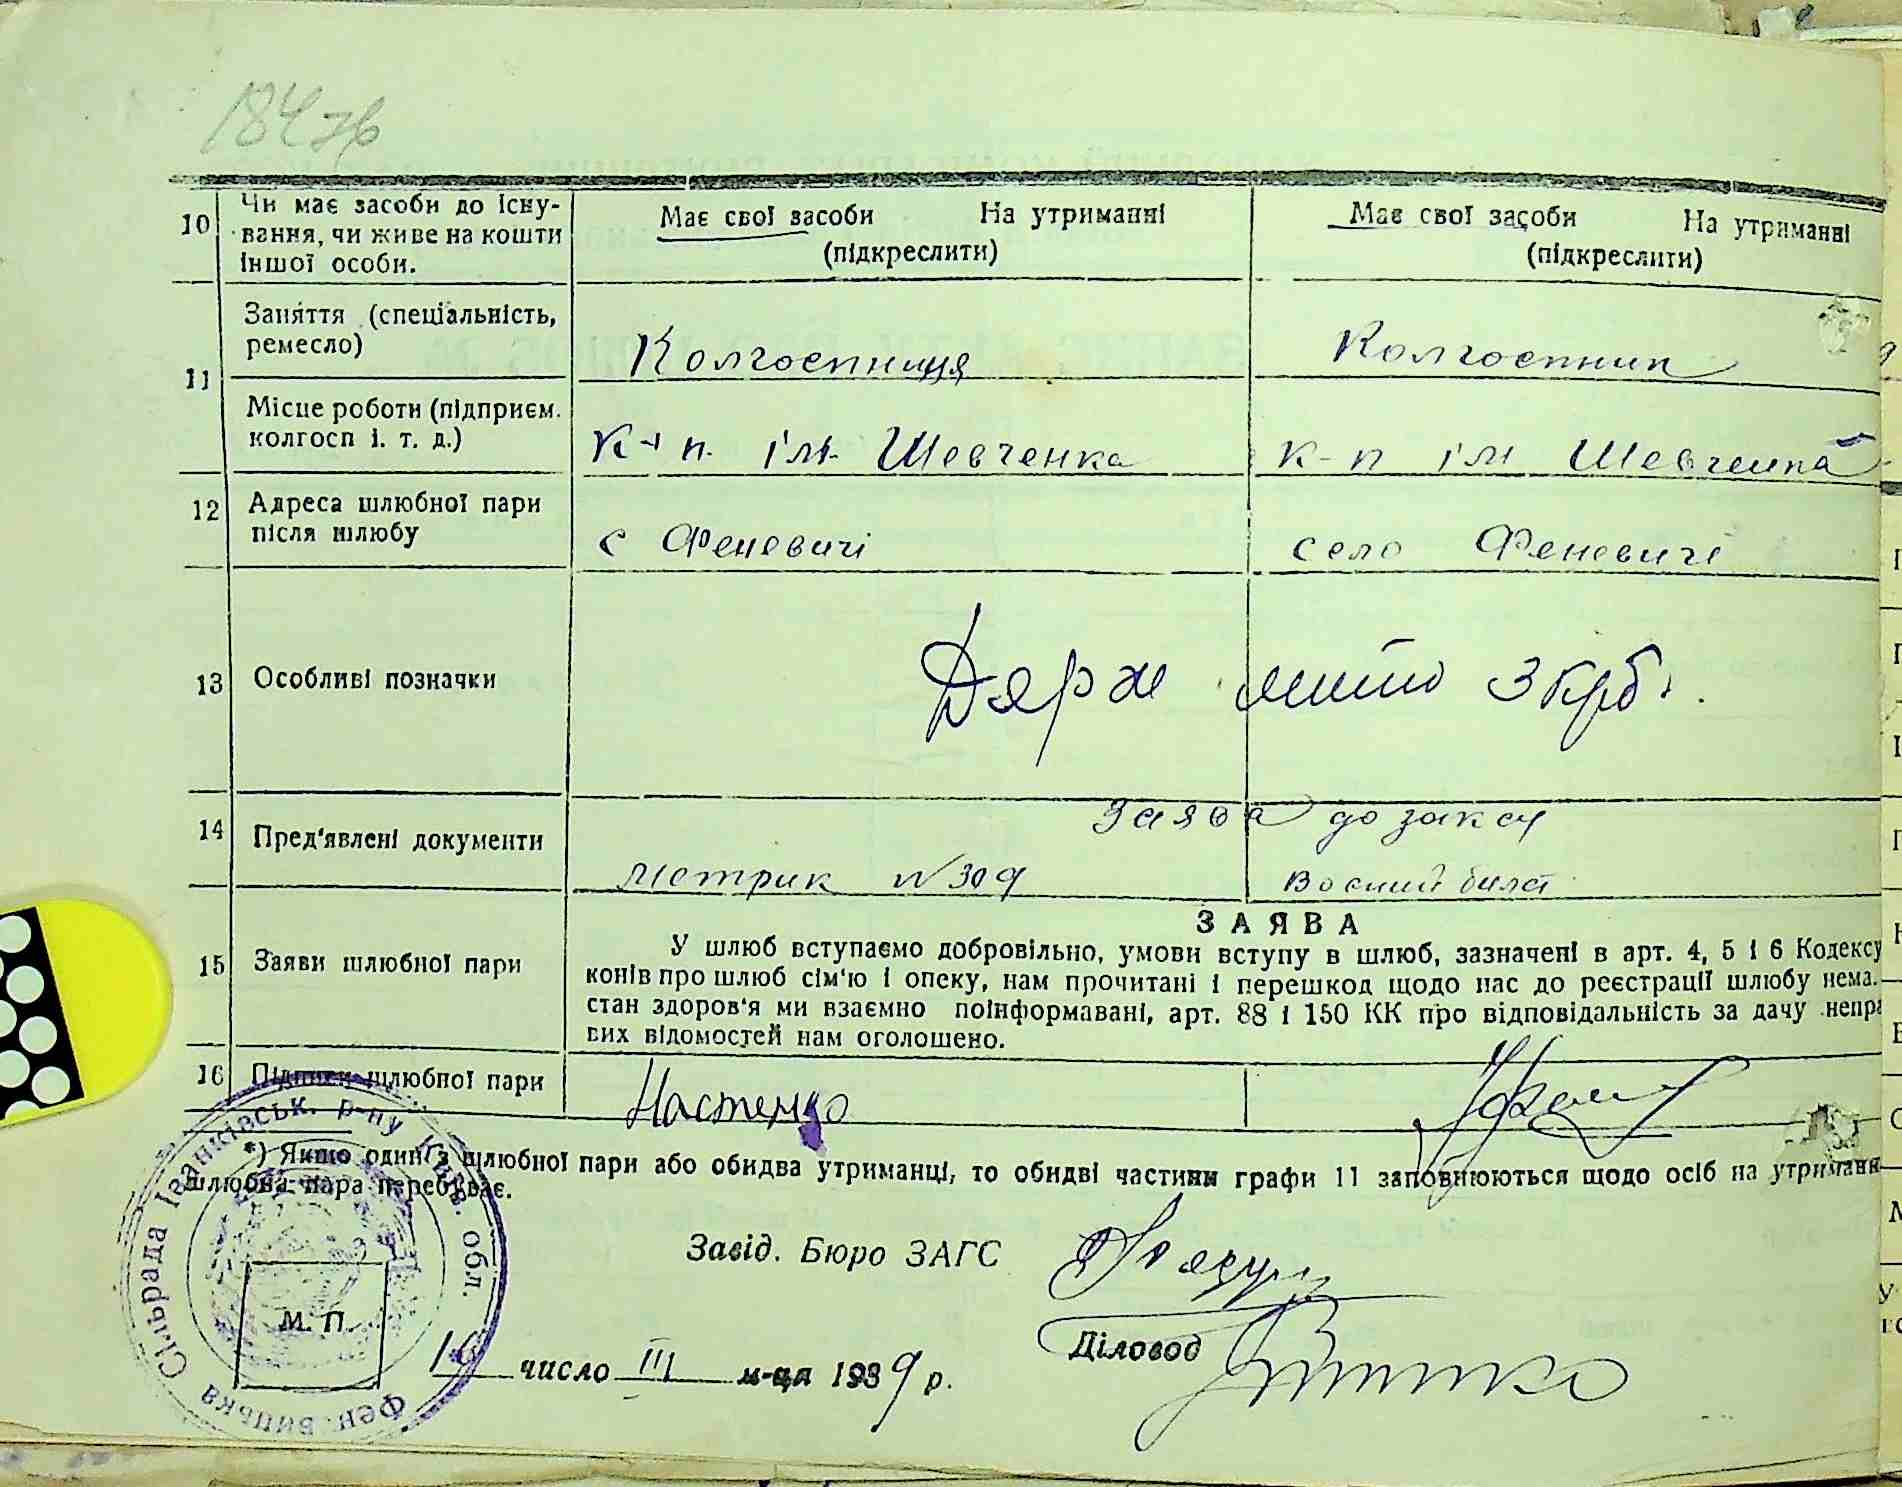 184 зв
10 Чи має засоби до існу-
вання, чи живе на кошти
іншої особи.
Має свої засоби На утриманні
(підкреслити)
Має свої засоби На утриманні
(підкреслити)
11 Заняття (спеціальність,
ремесло)
Колгоспниця
Колгоспник
Місце роботи (підприєм.
колгосп і. т. д.)
К-п. ім. Шевченка
к-п ім Шевченка
12 Адреса шлюбної пари
після шлюбу
с Феневичі
село Феневичі
13 Особливі позначки
Держ мито 3 крб.
14 Пред'явлені документи
Заява до загсу
метрик № 309
воєний билет
15 Заяви шлюбної пари
ЗАЯВА
У шлюб вступаємо добровільно, умови вступу в шлюб, зазначені в арт. 4, 5 і 6 Кодексу
конів про шлюб сім'ю і опеку, нам прочитані і перешкод щодо нас до реєстрації шлюбу нема.
стан здоров'я ми взаємно поінформавані, арт. 88 і 150 КК про відповідальність за дачу непра
вих відомостей нам оголошено.
16 Підписи шлюбної пари
Настенко
*) Якщо один з шлюбної пари або обидва утриманці, то обидві частини графи 11 заповнюються щодо осіб на утриманн
шлюбна пара перебуває.
Завід. Бюро ЗАГС
Діловод
М. П.
число III м-ця 1939 р.
Фен.вицька Сільрада Іванківськ. р-ну Київ. обл.